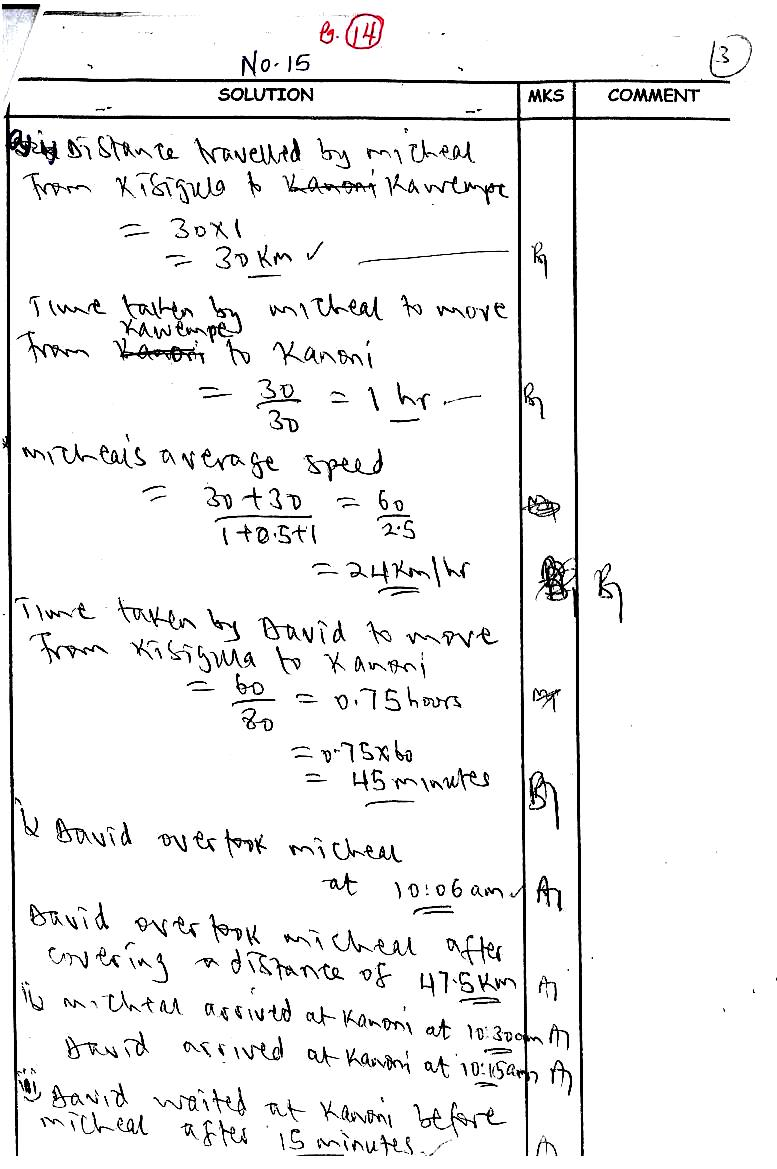 Pg. 14
No. 15
3
SOLUTION MKS COMMENT
Distance travelled by micheal
from Kisigula to Kanoni Kawempe
= 30x1
= 30 Km ✓ B1
Time taken by micheal to move
Kawempe
from Kanoni to Kanoni
= 30/30 = 1 hr B1
micheal's average speed
= 30+30/1+0.5+1 = 60/2.5
= 24 Km/hr B1
Time taken by David to move
from Kisigula to Kanoni
= 60/80 = 0.75 hours M1
= 0.75x60
= 45 minutes B1
i) David overtook micheal
at 10:06 am ✓ A1
David overtook micheal after
covering a distance of 47.5 Km A1
ii) micheal arrived at Kanoni at 10:30am A1
David arrived at Kanoni at 10:15am A1
iii) David waited at Kanoni before
micheal after 15 minutes ✓ A